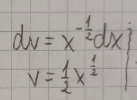 dv = x^{-\frac{1}{2}} dx
v = \frac{1}{2} x^{\frac{1}{2}}